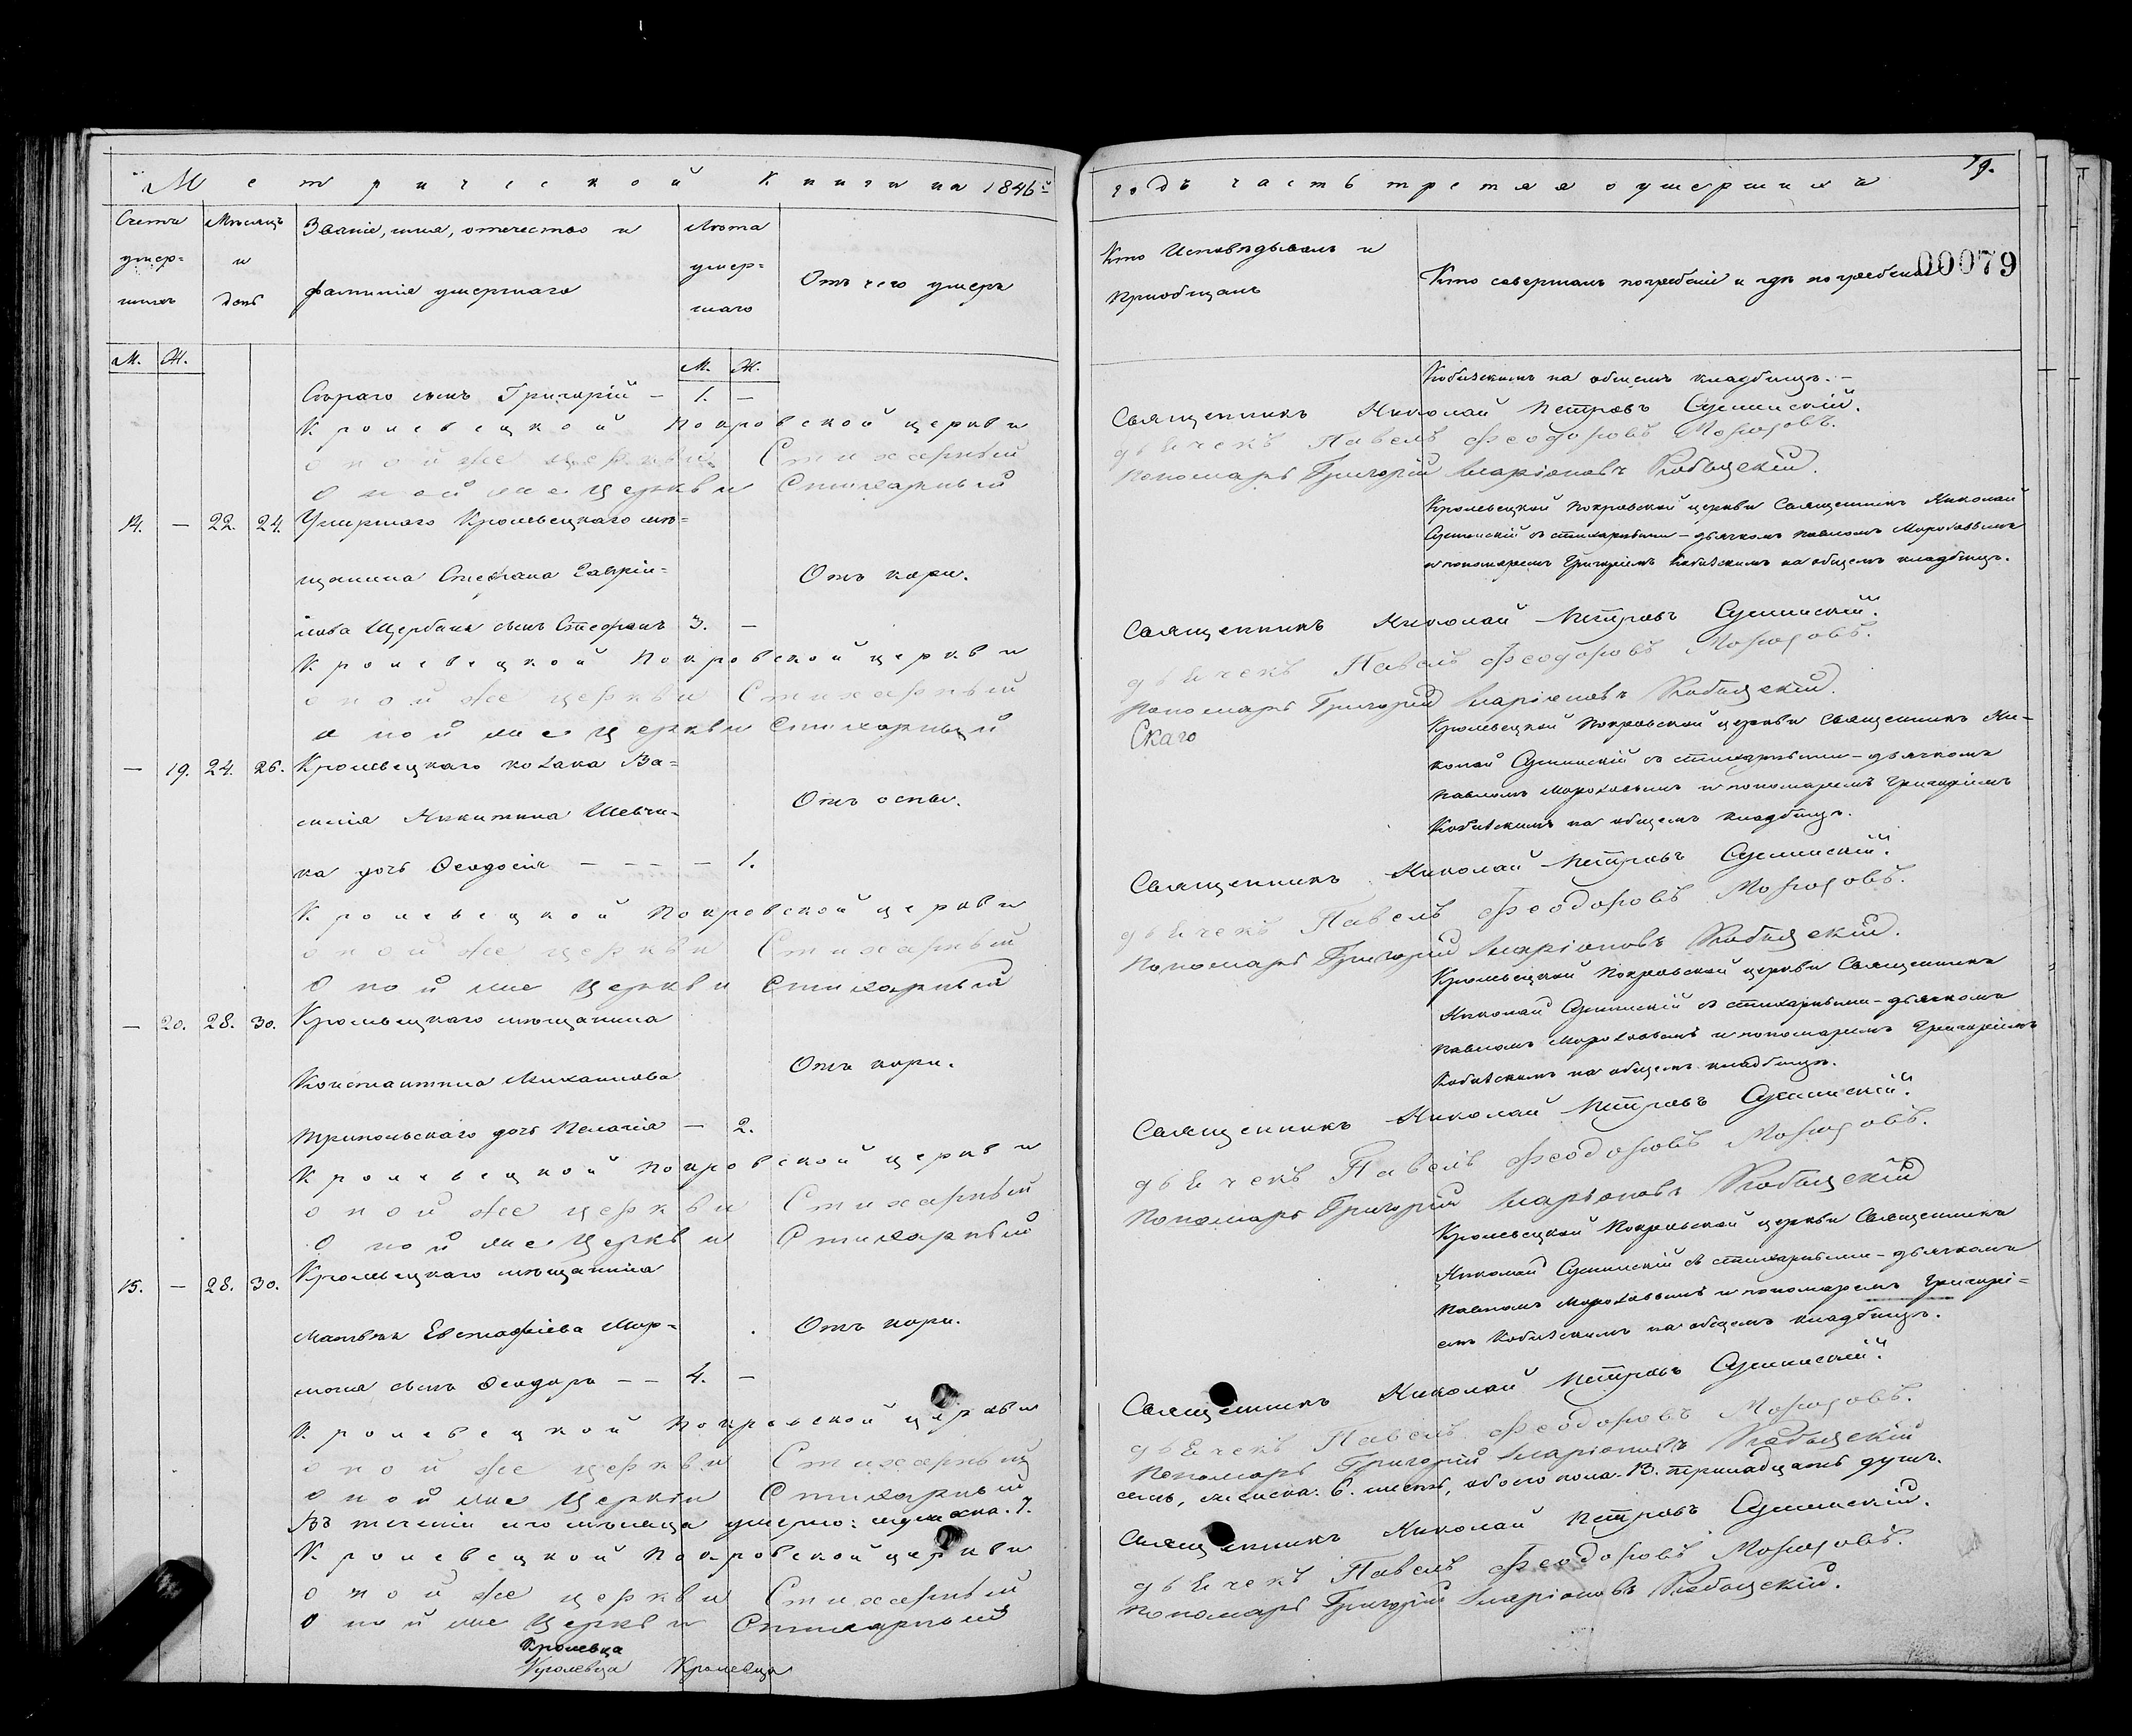 Метрической книги на 1846й
Счетъ умер= шихъ
Мѣсяцъ и день
Званіе, имя, отечество и фамилія умершаго
Лѣта умер= шаго
Отъ чего умеръ
М. Ж.
М. Ж.
Стараго сынъ Григорій — 1. —
Кролевецкой Покровской церкви
оной же церкви Стихарный
Оной же Церкви Стихарный
14. — 22. 24. Умершаго Кролевецкаго мѣ=
щанина Стефана Гавріи= Отъ кори.
лова Щербака сынъ Стефанъ 3. —
Кролевецкой Покровской церкви
оной же церкви Стихарный
оной же Церкви Стихарный
— 19. 24. 26. Кролевецкаго козака Ва=
силія Никитина Шевчи- Отъ оспы.
ка дочь Ѳеодосія — — — — 1.
Кролевецкой Покровской церкви
оной же церкви Стихарный
Оной же Церкви Стихарный
— 20. 28. 30. Кролевецкаго мѣщанина
Константина Михаилова Отъ кори.
Трипольскаго дочь Пелагія — 2.
Кролевецкой Покровской церкви
оной же церкви Стихарный
Оной же Церкви Стихарный
15. — 28. 30. Кролевецкаго мѣщанина
Матвѣя Евстафіева Отъ кори.
сынъ Ѳеодоръ — — 4. —
Кролевецкой Покровской церкви
оной же церкви Стихарный
оной же Церкви Стихарный
Въ теченіи сего мѣсяца умерло: мужеска. 7.
Кролевецкой Покровской церкви
оной же церкви Стихарный
Оной же Церкви Стихарный
Кролевца
Кролевца Кролевца
годъ часть третяя о умершихъ
79.
00079
Кто Исповѣдывалъ и Приобщалъ
Кто совершалъ погребеніе и гдѣ погребены
Кобизскимъ на общемъ кладбищѣ. —
Священникъ Николай Петровъ Сушинскій.
дьячекъ Павелъ Феодоровъ Морозовъ.
Пономарь Григорій Иларіоновъ Кобызскій.
Кролевецкой Покровской церкви Священникъ Николай
Сушинскій съ стихарными — дьячкомъ Павломъ Морозовымъ
и пономаремъ Григоріемъ Кобизскимъ на общемъ кладбищѣ.
Священникъ Николай Петровъ Сушинскій.
дьячекъ Павелъ Феодоровъ Морозовъ.
Пономарь Григорій Иларіоновъ Кобызскій.
Скаго
Кролевецкой Покровской церкви Священникъ Ни-
колай Сушинскій съ стихарными — дьячкомъ
Павломъ Морозовымъ и пономаремъ Григоріемъ
Кобизскимъ на общемъ кладбищѣ.
Священникъ Николай Петровъ Сушинскій.
дьячекъ Павелъ Феодоровъ Морозовъ.
Пономарь Григорій Иларіоновъ Кобызскій.
Кролевецкой Покровской церкви Священникъ
Николай Сушинскій съ стихарными — дьячкомъ
Павломъ Морозовымъ и пономаремъ Григоріемъ
Кобизскимъ на общемъ кладбищѣ.
Священникъ Николай Петровъ Сушинскій.
дьячекъ Павелъ Феодоровъ Морозовъ.
Пономарь Григорій Иларіоновъ Кобызскій
Кролевецкой Покровской церкви Священникъ
Николай Сушинскій съ стихарными — дьячкомъ
Павломъ Морозовымъ и пономаремъ Григорі=
емъ Кобизскимъ на общемъ кладбищѣ.
Священникъ Николай Петровъ Сушинскій.
дьячекъ Павелъ Феодоровъ Морозовъ.
Пономарь Григорій Иларіоновъ Кобызскій
семь, женска. 6. шесть, обоего пола. 13. тринадцать душъ.
Священникъ Николай Петровъ Сушинскій.
дьячекъ Павелъ Феодоровъ Морозовъ.
Пономарь Григорій Иларіоновъ Кобызскій.